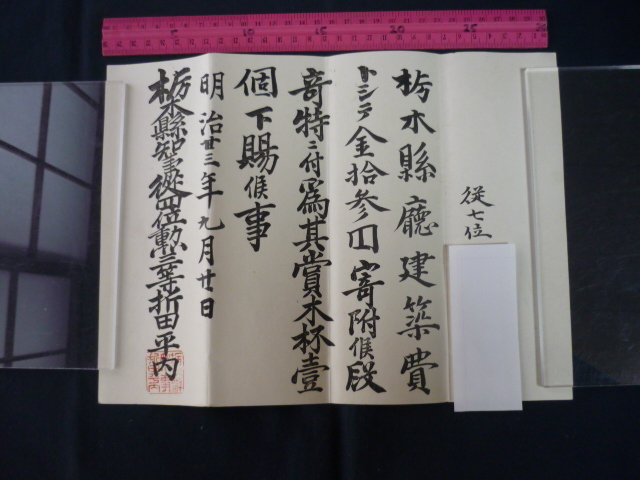 従七位
栃木縣廳建築費
トシテ金拾参円寄附候段
奇特ニ付為其賞木杯壹
個下賜候事
明治廿三年九月廿日
栃木縣知事従四位勲三等折田平内
5 10 15 20 25